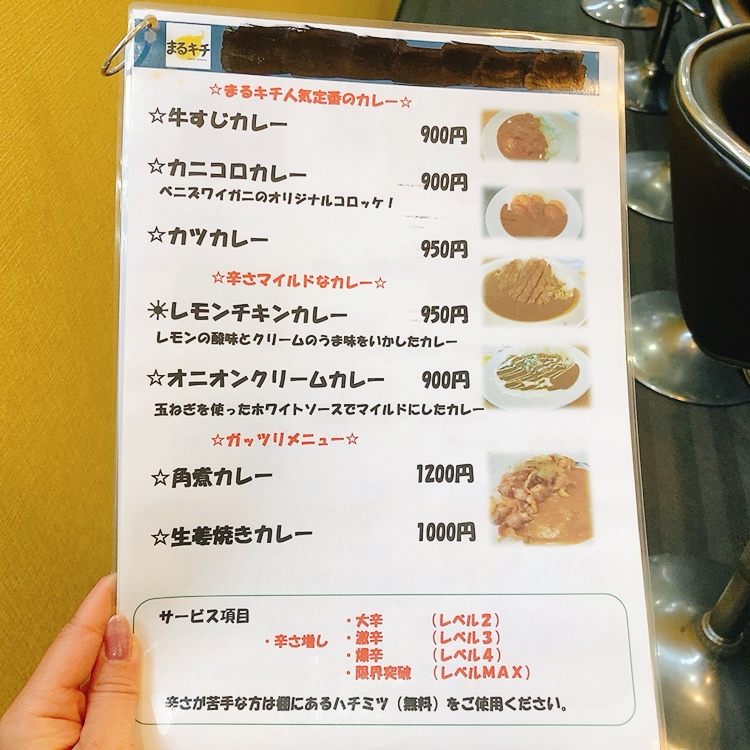 まるキチ
☆まるキチ人気定番のカレー☆
☆牛すじカレー 900円
☆カニコロカレー 900円
ベニズワイガニのオリジナルコロッケ！
☆カツカレー 950円
☆辛さマイルドなカレー☆
☀レモンチキンカレー 950円
レモンの酸味とクリームのうま味をいかしたカレー
☆オニオンクリームカレー 900円
玉ねぎを使ったホワイトソースでマイルドにしたカレー
☆ガッツリメニュー☆
☆角煮カレー 1200円
☆生姜焼きカレー 1000円
サービス項目
・辛さ増し
・大辛 （レベル2）
・激辛 （レベル3）
・爆辛 （レベル4）
・限界突破 （レベルMAX）
辛さが苦手な方は棚にあるハチミツ（無料）をご使用ください。